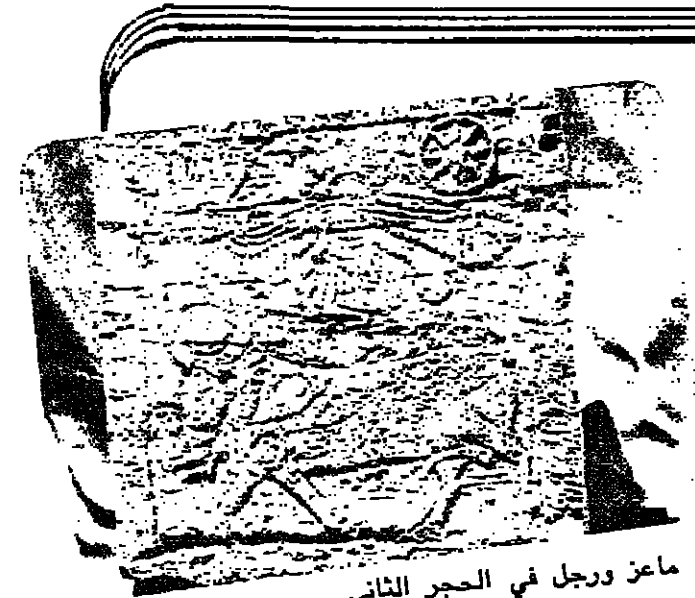 ماعز ورجل في الحجر الثاني